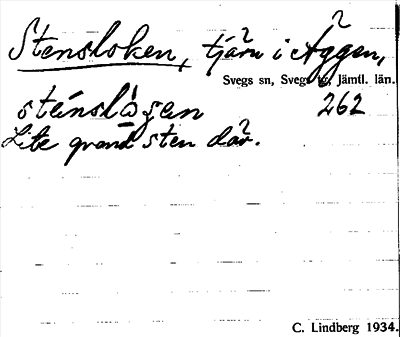 Stensloken, tjärn i Äggen,
Svegs sn, Svegs tg, Jämtl. län.
stènslò̱gen 262
Lite grand sten där.
C. Lindberg 1934.